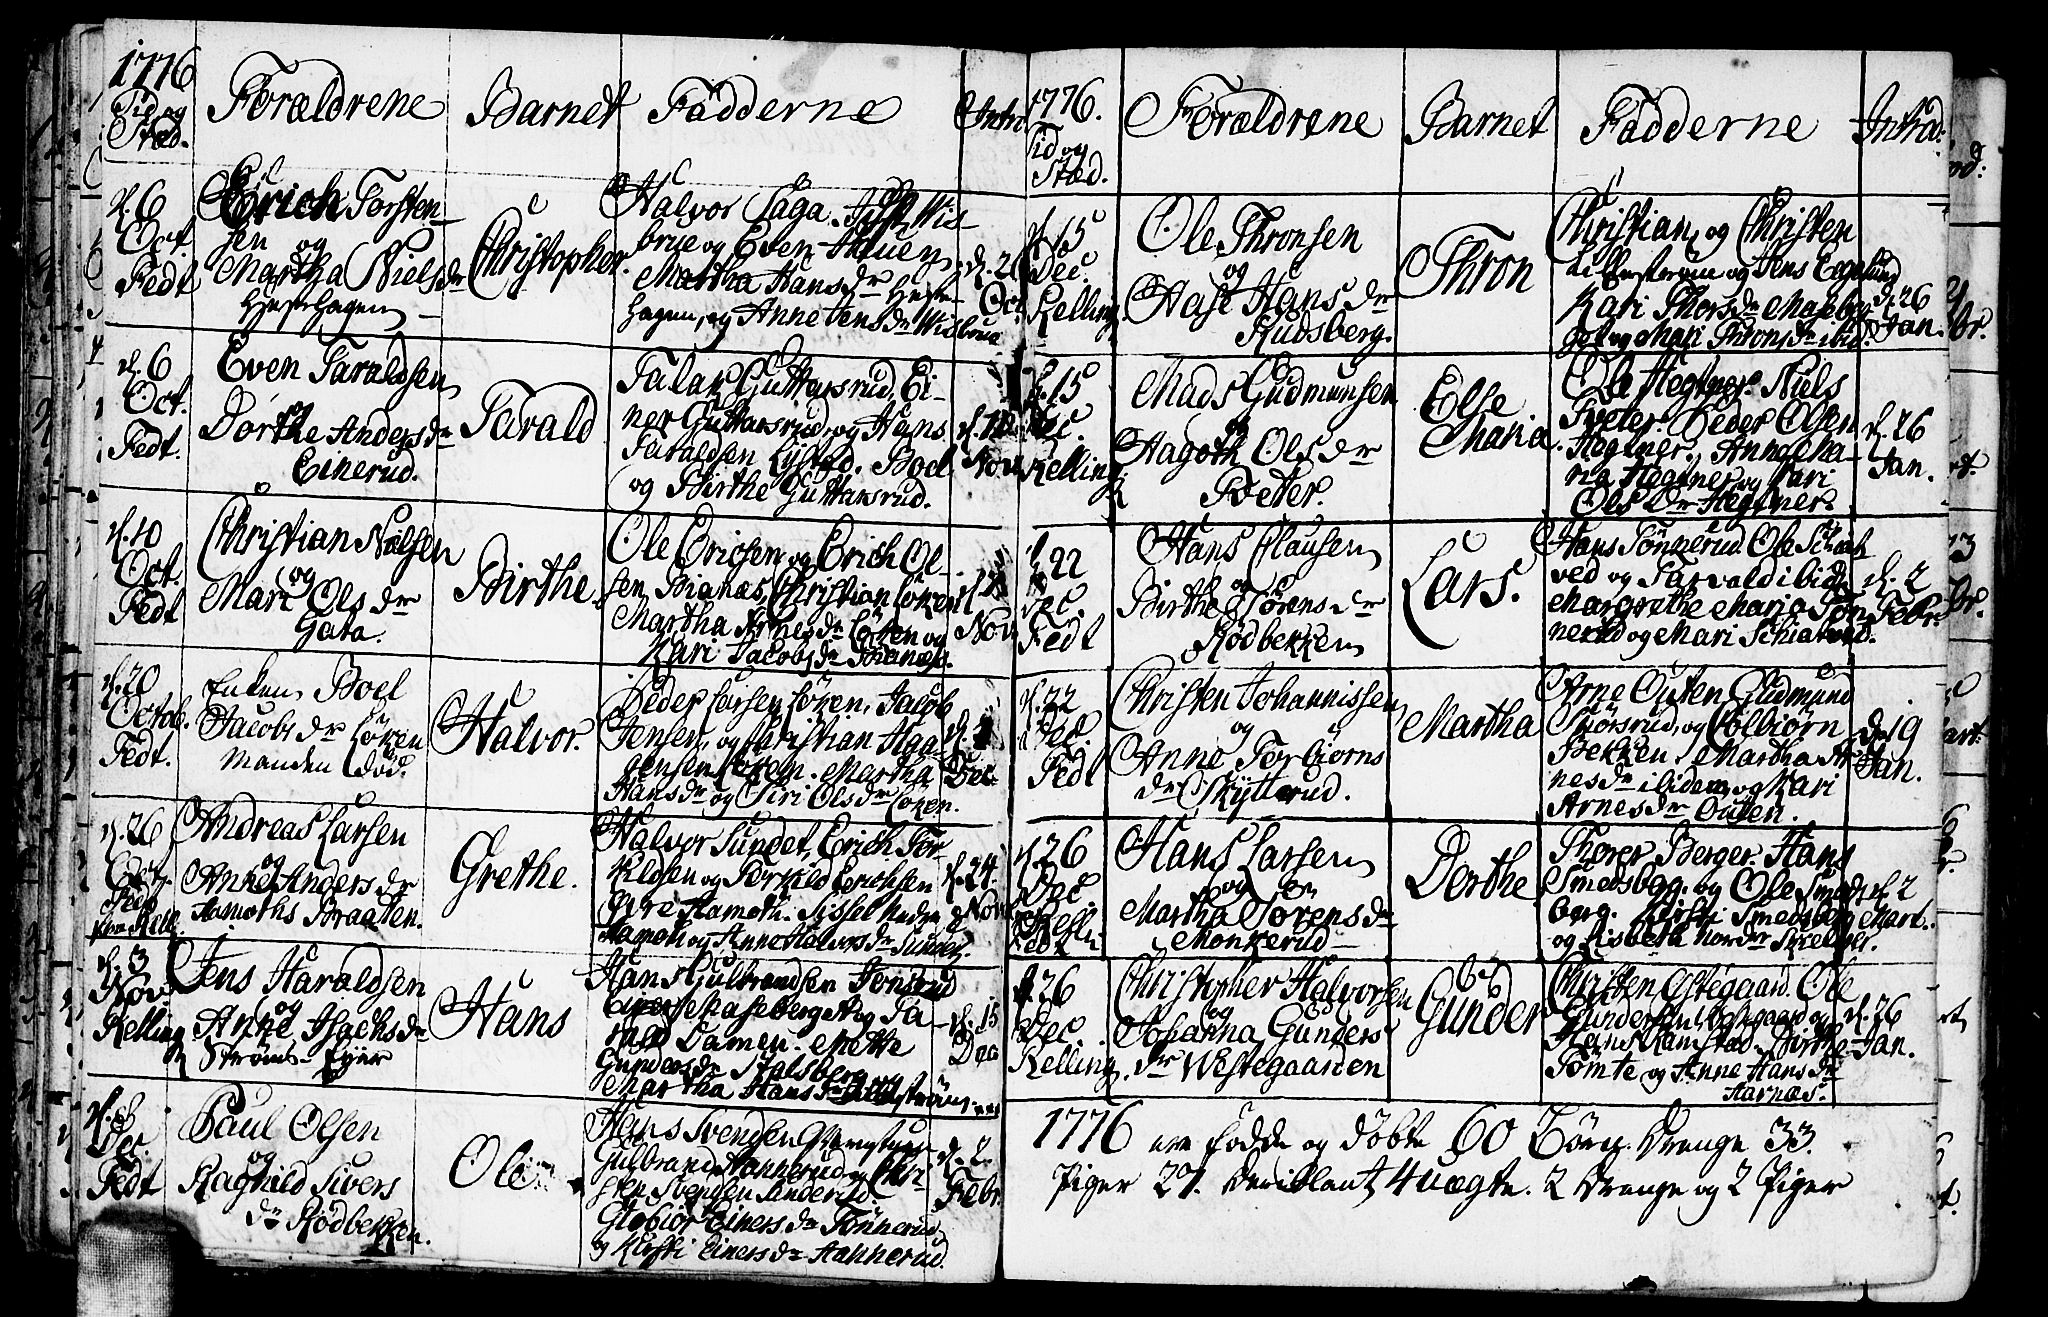 1776
Tid og
Stæd.
Forældrene
Barnet
Fadderne
Introd
d. 6
Oct.
Fedt
Erich Torsten-
sen og
Martha Niels dr
Hestehagen
Christopher.
Halvor Haga. Wis-
brue og Even
Martha Hans dr Heste-
hagen, og Anne Jens dr Wisbrue
d. 26
Oct.
d. 6
Oct.
Fedt.
Even Taraldsen
og
Dorthe Anders dr
Einerud.
Tarald
Guttarsrud, Ei-
ner Guttarsrud, og Hans
Taraldsen Boel
og Birthe Guttarsrud.
Nov.
d. 10
Oct.
Fedt
Christian Nielsen
og
Mari Ols dr
Gata.
Birthe.
Ole Ericsen og Erich Ol-
sen Bianæs, Christian Løken
Martha Arnes dr Løken og
Kari Jacobs dr
Nov
d. 20
Octob.
Fedt.
Enken Boel
Jacobs dr Løken
Manden død.
Halvor.
Peder Larsen Løken, Jacob
Jensen, og Christian Haa-
gensen Løken. Martha
Hans dr og Siri Ols dr Løken.
Dec.
d. 26
Oct.
Andreas Larsen
og
Anne Anders dr
Hamoths Braaten.
Grethe.
Halvor Sundet, Erich Tor-
kildsen og Torkild Erichsen
Hamoth. Sissel nedre
Hamoth og Anne Halvors dr Sundet.
d. 24.
Nov.
d. 3
Nov
Kelling
Jens Haraldsen
og
Anne Isachs dr
Strøms Eyer
Hans
Hans Gulbrandsen
Maseberg
Damen. Mette
Gunders dr Stalsberg og
Martha Hans dr
d. 15
Dec
d. 8
Dec.
Fedt
Paul Olsen
og
Raghild Sivers
dr Rødbekken.
Ole
Hans Svendsen
Gulbrand Hannerud, Chri-
sten Svendsen
Globior Einers dr Tønnerud,
og Kirsti Einers dr Hannerud.
d. 2.
Febr.
1776.
Tid og
Stæd.
Forældrene
Barnet
Fadderne
Introd:
d. 15
Dec.
Kelling
Ole Thronsen
og
Aase Hans dr
Rudsberg.
Thron
Christian og Christen
Lillestrøm og Jens Egelund
Kari Thors dr
og Mari Throns dr ibid.
d. 26
Jan.
d. 15
Dec.
Kelling
Mads Gudmunsen
og
Aagoth Ols dr
Tveter.
Else
Maria.
Ole Hegtner. Niels
Tveter. Peder Olsen
Hegtner. Anne Ma-
ria Hegtner og Kari
Ols dr Hegtner.
d. 26
Jan.
d. 22
Dec.
Fedt
Hans Clausen
og
Birthe Sørens dr
Rødbekken
Lars.
Hans Tønnerud. Ole Schiat-
ved og Tarvald ibid.
Margrethe Maria Tøn-
nerud og Mari Schiatved.
d. 2
Febr.
d. 22
Dec
Fedt
Christen Johannissen
og
Anne Torbiørns
dr Skytterud.
Martha
Arne Outen Gudmund
og Colbiørn
Bekken. Martha Ar-
nes dr ibidem og Kari
Arnes dr Outen.
d. 19
Jan.
d. 26
Dec
Hans Larsen
og
Martha Sørens dr
Monkerud
Dorthe
Thorer Berger. Hans
Smedsberg. og Ole Smeds-
berg. Kirsti Smedsberg
og Lisbeth
d. 2
Mart.
d. 26
Dec.
Kelling
Christopher Halvorsen
og
Johanna Gunders
dr Westegaarden
Gunder
Christen Østegaard. Ole
Gundersen og
Ramstad. Birthe
Tomte og Anne Hans dr
Aarnæs.
d. 26
Jan.
1776 ere fødde og døbte 60 Børn. Drenge 33.
Piger 27. Deriblant 4 uægte. 2 Drenge og 2 Piger